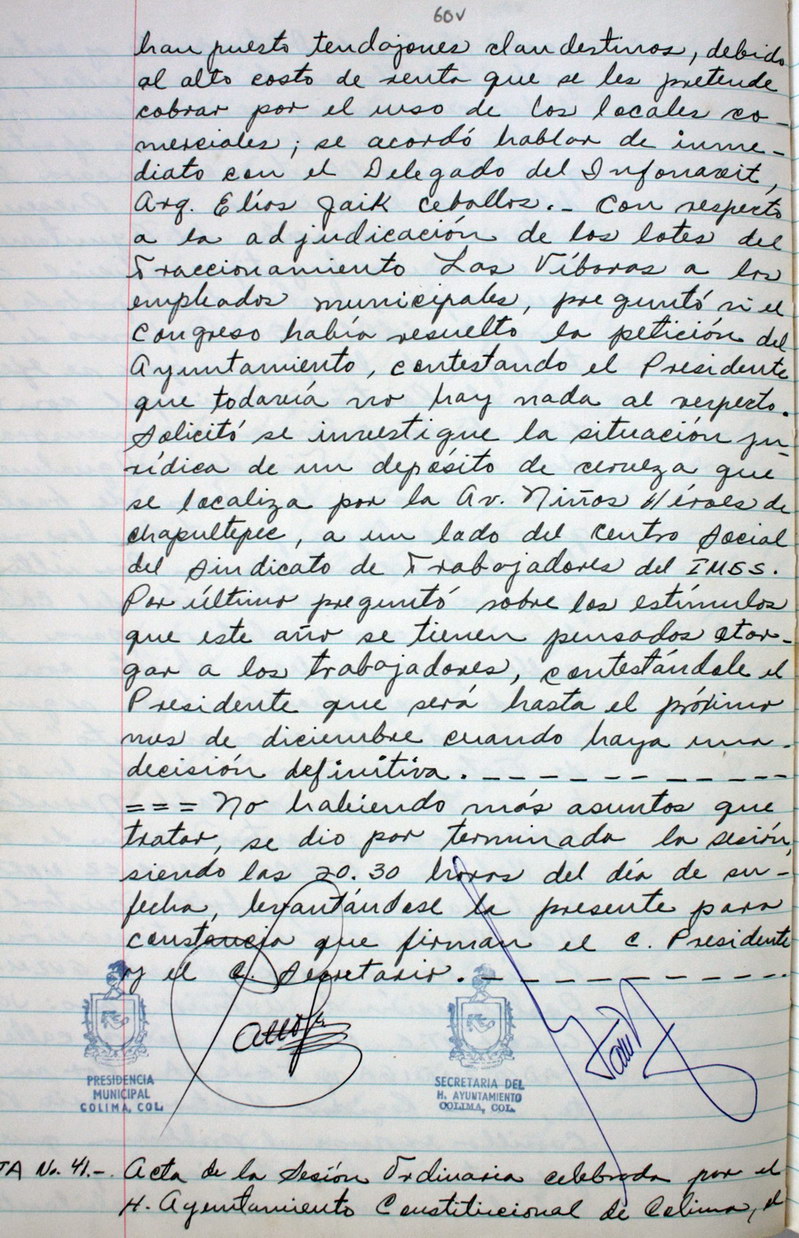 60v
han puesto tendajones clandestinos, debido
al alto costo de renta que se les pretende
cobrar por el uso de los locales co-
merciales; se acordó hablar de inme-
diato con el Delegado del Infonavit,
Arq. Elías Jaik Ceballos.- Con respecto
a la adjudicación de los lotes del
Fraccionamiento Las Víboras a los
empleados municipales, preguntó si el
Congreso había resuelto la petición del
Ayuntamiento, contestando el Presidente
que todavía no hay nada al respecto.
Solicitó se investigue la situación ju-
rídica de un depósito de cerveza que
se localiza por la Av. Niños Héroes de
Chapultepec, a un lado del Centro Social
del Sindicato de Trabajadores del IMSS.
Por último preguntó sobre los estímulos
que este año se tienen pensados otor-
gar a los trabajadores, contestándole el
Presidente que será hasta el próximo
mes de diciembre cuando haya una
decisión definitiva. - - - - - - - - - - -
=== No habiendo más asuntos que
tratar, se dio por terminada la sesión,
siendo las 20.30 horas del día de su
fecha, levantándose la presente para
constancia que firman el C. Presidente
y el C. Secretario. - - - - - - - - - - -
PRESIDENCIA
MUNICIPAL
COLIMA, COL.
SECRETARIA DEL
H. AYUNTAMIENTO
COLIMA, COL.
TA No. 41.- Acta de la Sesión Ordinaria celebrada por el
H. Ayuntamiento Constitucional de Colima, el